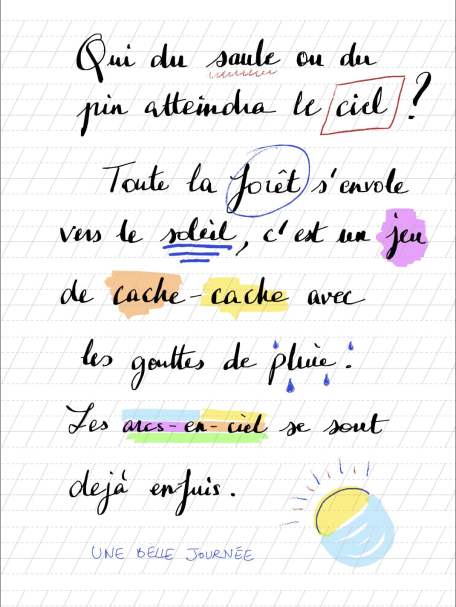 Qui du saule ou du
pin atteindra le ciel ?
Toute la forêt s'envole
vers le soleil, c'est un jeu
de cache-cache avec
les gouttes de pluie.
Les arcs-en-ciel se sont
dejà enfuis.
UNE BELLE JOURNÉE